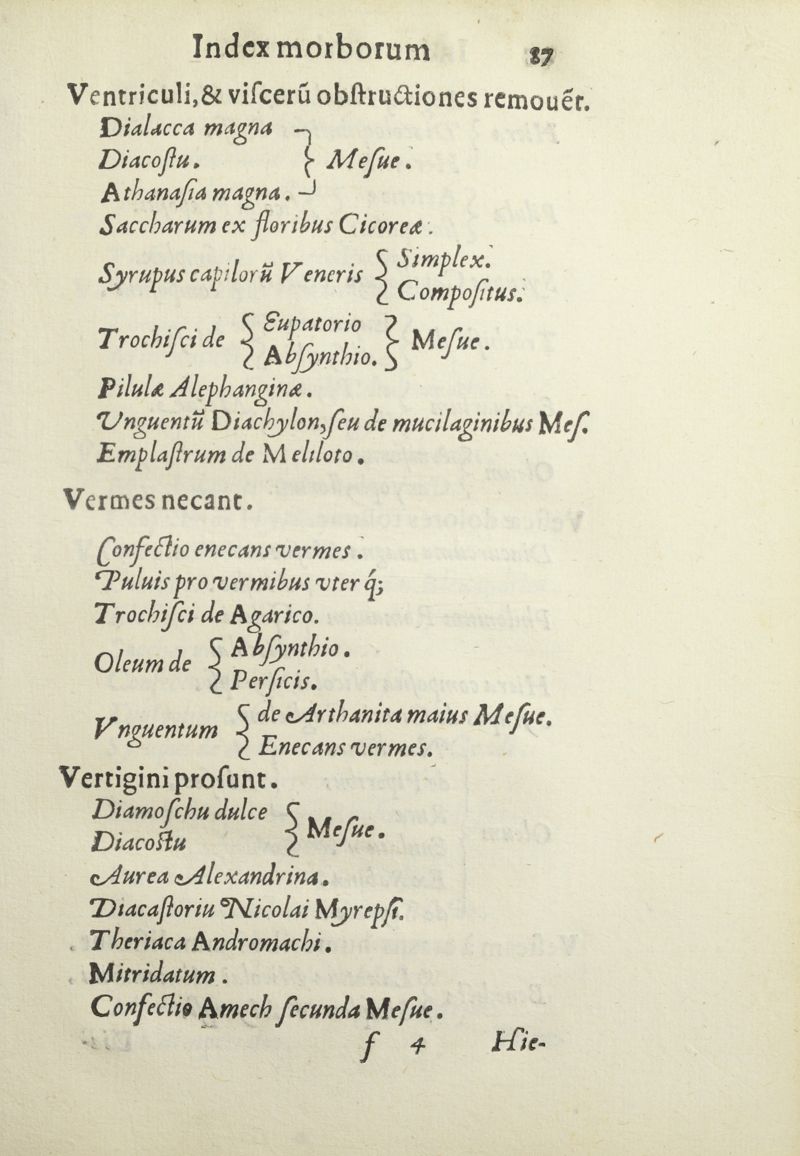 Index morborum 87
Ventriculi, & viſcerū obſtructiones remouēt.
Dialacca magna
Diacoſtu. } Meſue.
Athanaſia magna.
Saccharum ex floribus Cicoreæ.
Syrupus capilorū Veneris { Simplex.
Compoſitus.
Trochiſci de { Eupatorio } Meſue.
Abſynthio.
Pilulæ Alephanginæ.
Vnguentū Diachylon, ſeu de mucilaginibus Meſ.
Emplaſtrum de Meliloto.
Vermes necant.
Confectio enecans vermes.
Puluis pro vermibus vterq́;
Trochiſci de Agarico.
Oleum de { Abſynthio.
Perſicis.
Vnguentum { de Arthanita maius Meſue.
Enecans vermes.
Vertigini proſunt.
Diamoſchu dulce
Diacoſtu } Meſue.
Aurea Alexandrina.
Diacaſtoriu Nicolai Myrepſi.
Theriaca Andromachi.
Mitridatum.
Confectio Amech ſecunda Meſue.
f 4 Hie-